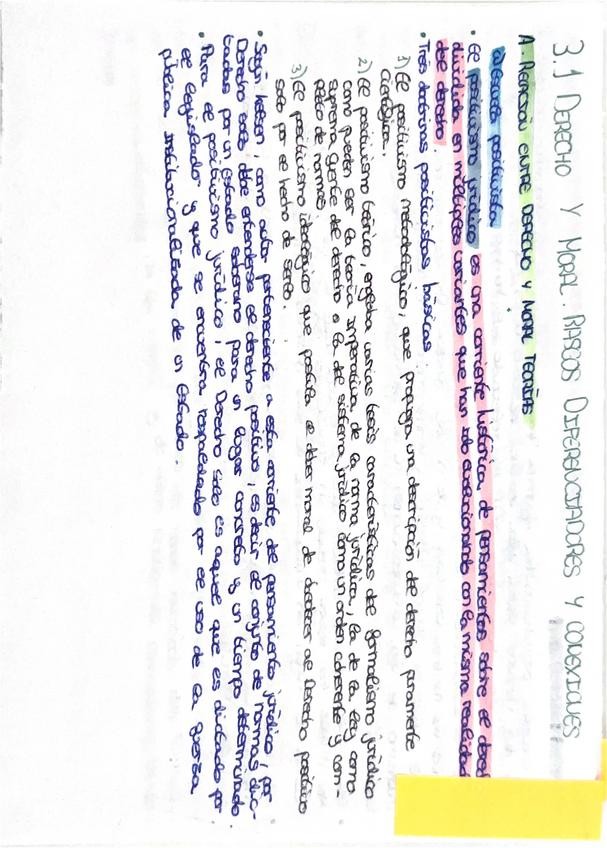 3.1 DERECHO Y MORAL. RASGOS DIFERENCIADORES Y CONEXIONES
A. RELACIÓN ENTRE DERECHO Y MORAL TEORÍAS
a) Escuela positivista
• El positivismo jurídico es una corriente histórica de pensamientos sobre el derecho
dividida en múltiples variantes que han ido evolucionando con la misma realidad
del derecho.
• Tres doctrinas positivistas básicas
1) El positivismo metodológico, que propugna una descripción del derecho puramente
científica.
2) El positivismo teórico, engloba varias tesis características del formalismo jurídico
como pueden ser la teoría imperativa de la norma jurídica, la de la ley como
suprema fuente del derecho o la del sistema jurídico como un orden coherente y com-
pleto de normas.
3) El positivismo ideológico que postula el deber moral de obedecer al Derecho positivo
solo por el hecho de serlo.
• Según Kelsen, como autor perteneciente a esta corriente del pensamiento jurídico, por
Derecho solo debe entenderse el derecho positivo, es decir el conjunto de normas dic-
tadas por un Estado soberano para un lugar concreto y un tiempo determinado
• Para el positivismo jurídico, el Derecho solo es aquel que es dictado por
el legislador y que se encuentra respaldado por el uso de la fuerza
pública institucionalizada de un Estado.